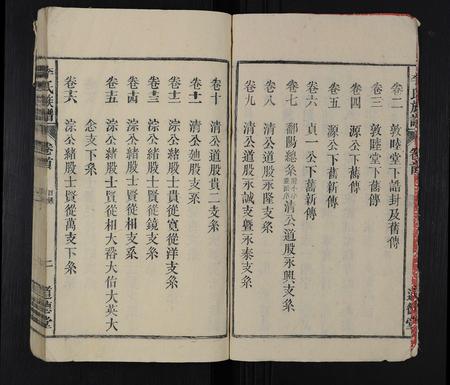 卷二 敦睦堂下誥封及舊傳
卷三 敦睦堂下舊傳
卷四 源公下舊傳
卷五 源公下舊新傳
卷六 貞一公下舊新傳
卷七 鄱陽總系 清公道股永興支系
卷八 清公道股永隆支系
卷九 清公道股永誠支暨永泰支系
卷十 清公道股貴二支系
卷十一 清公廸股支系
卷十二 淙公緒股士貴從寬從洋支系
卷十三 淙公緒股士賢從鏡支系
卷十四 淙公緒股士賢從相支系
卷十五 淙公緒股士賢從相大濬大佑大英大
念支下系
卷十六 淙公緒股士賢從萬支下系
李氏族譜 卷首 目錄 二 道德堂